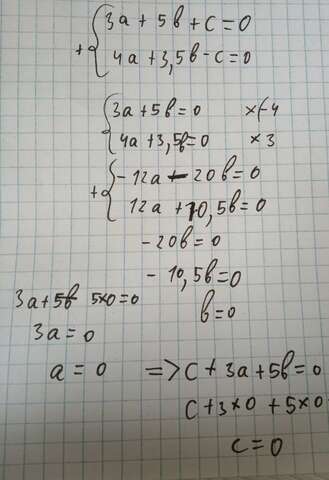 + { 3a + 5b + c = 0
4a + 3,5b - c = 0
{ 3a + 5b = 0 ×(-4
4a + 3,5b = 0 × 3
+ { -12a - 20b = 0
12a + 10,5b = 0
- 20b = 0
- 10,5b = 0
b = 0
3a + 5b 5×0 = 0
3a = 0
a = 0 => c + 3a + 5b = 0
c + 3×0 + 5×0
c = 0